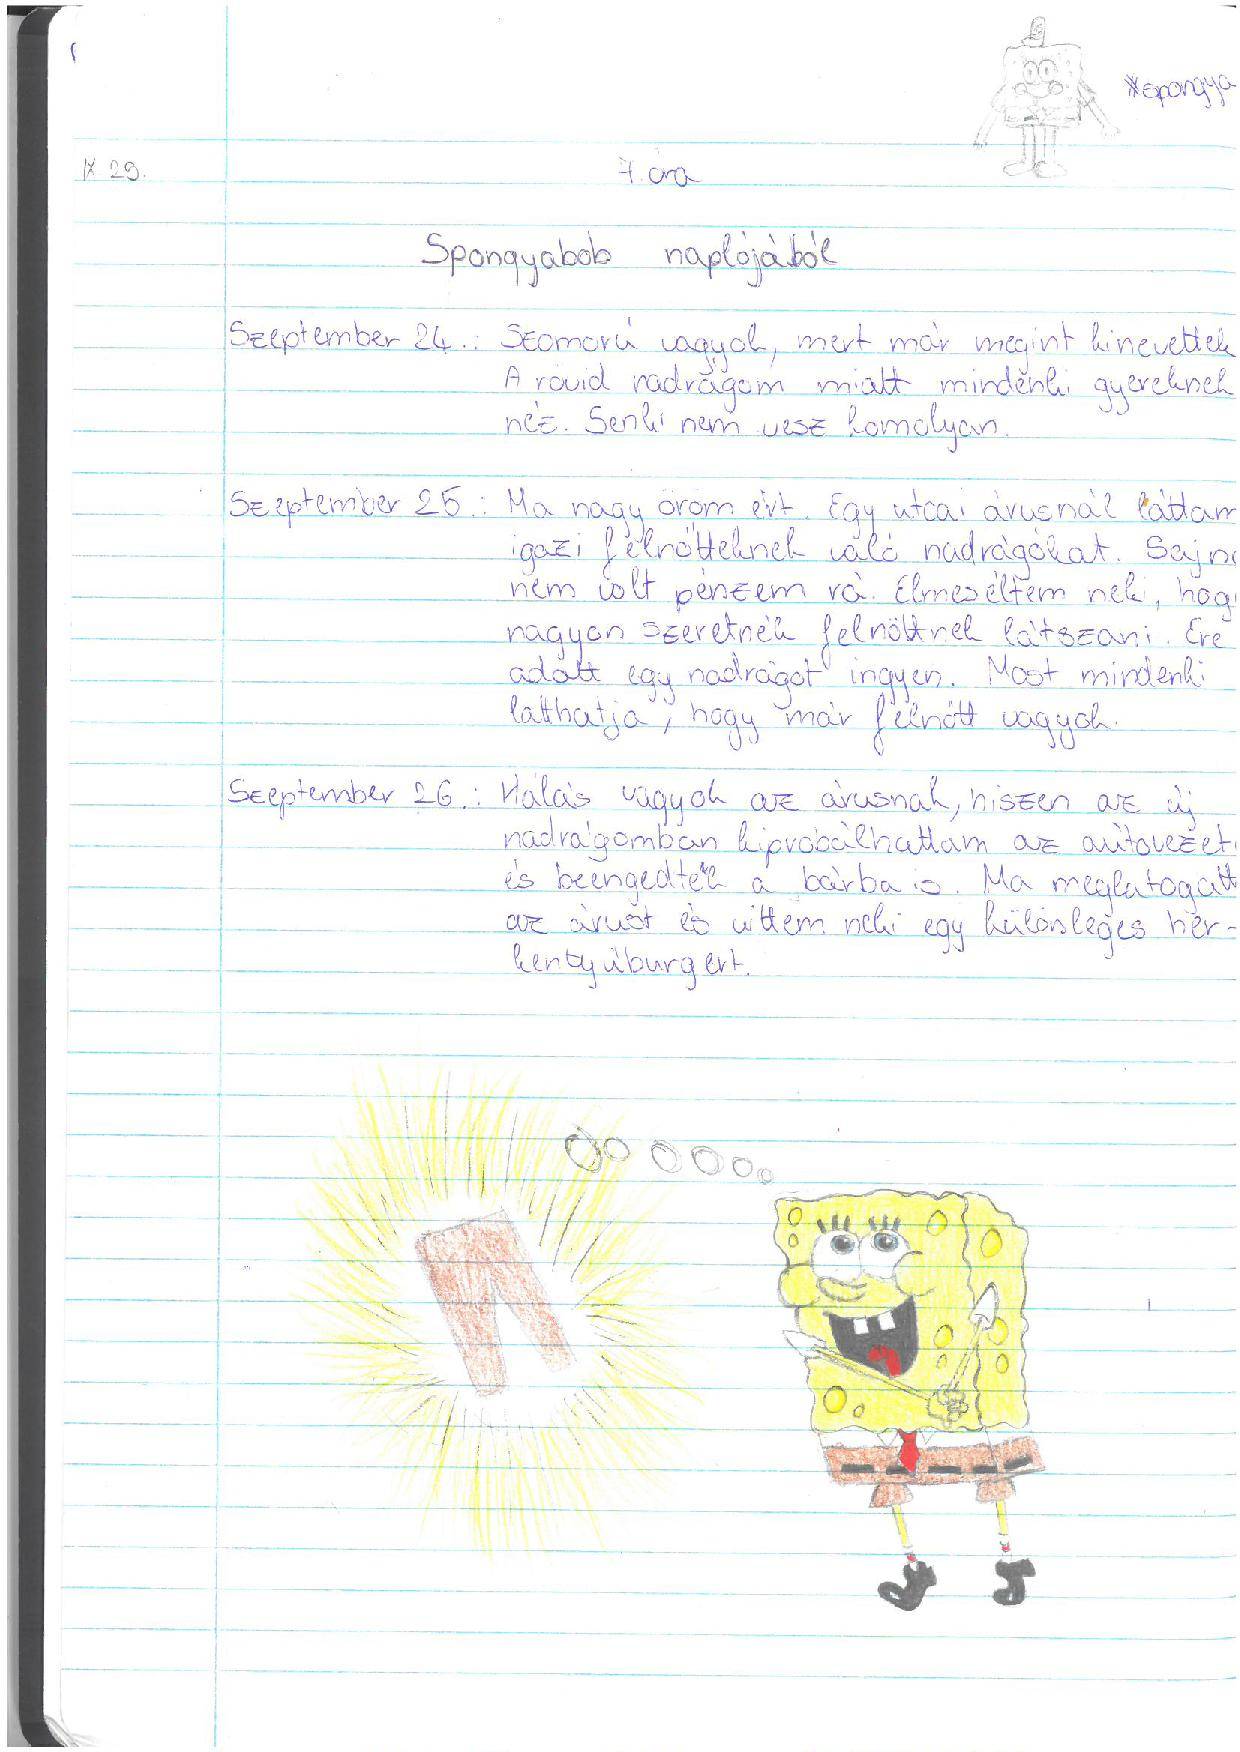 *spongya
IX 29.
7. óra
Spongyabob naplójából
Szeptember 24.: Szomorú vagyok, mert már megint kinevettek
A rövid nadrágom miatt mindenki gyereknek
néz. Senki nem vesz komolyan.
Szeptember 25.: Ma nagy öröm ért. Egy utcai árusnál láttam
igazi felnőtteknek való nadrágokat. Sajn
nem volt pénzem rá. Elmeséltem neki, hog
nagyon szeretnék felnőttnek látszani. Erre
adott egy nadrágot ingyen. Most mindenki
láthatja, hogy már felnőtt vagyok.
Szeptember 26.: Hálás vagyok az árusnak, hiszen az új
nadrágomban kipróbálhattam az autóvezet
és beengedtek a bárba is. Ma meglátogatt
az árust és vittem neki egy különleges her-
kentyűburgert.